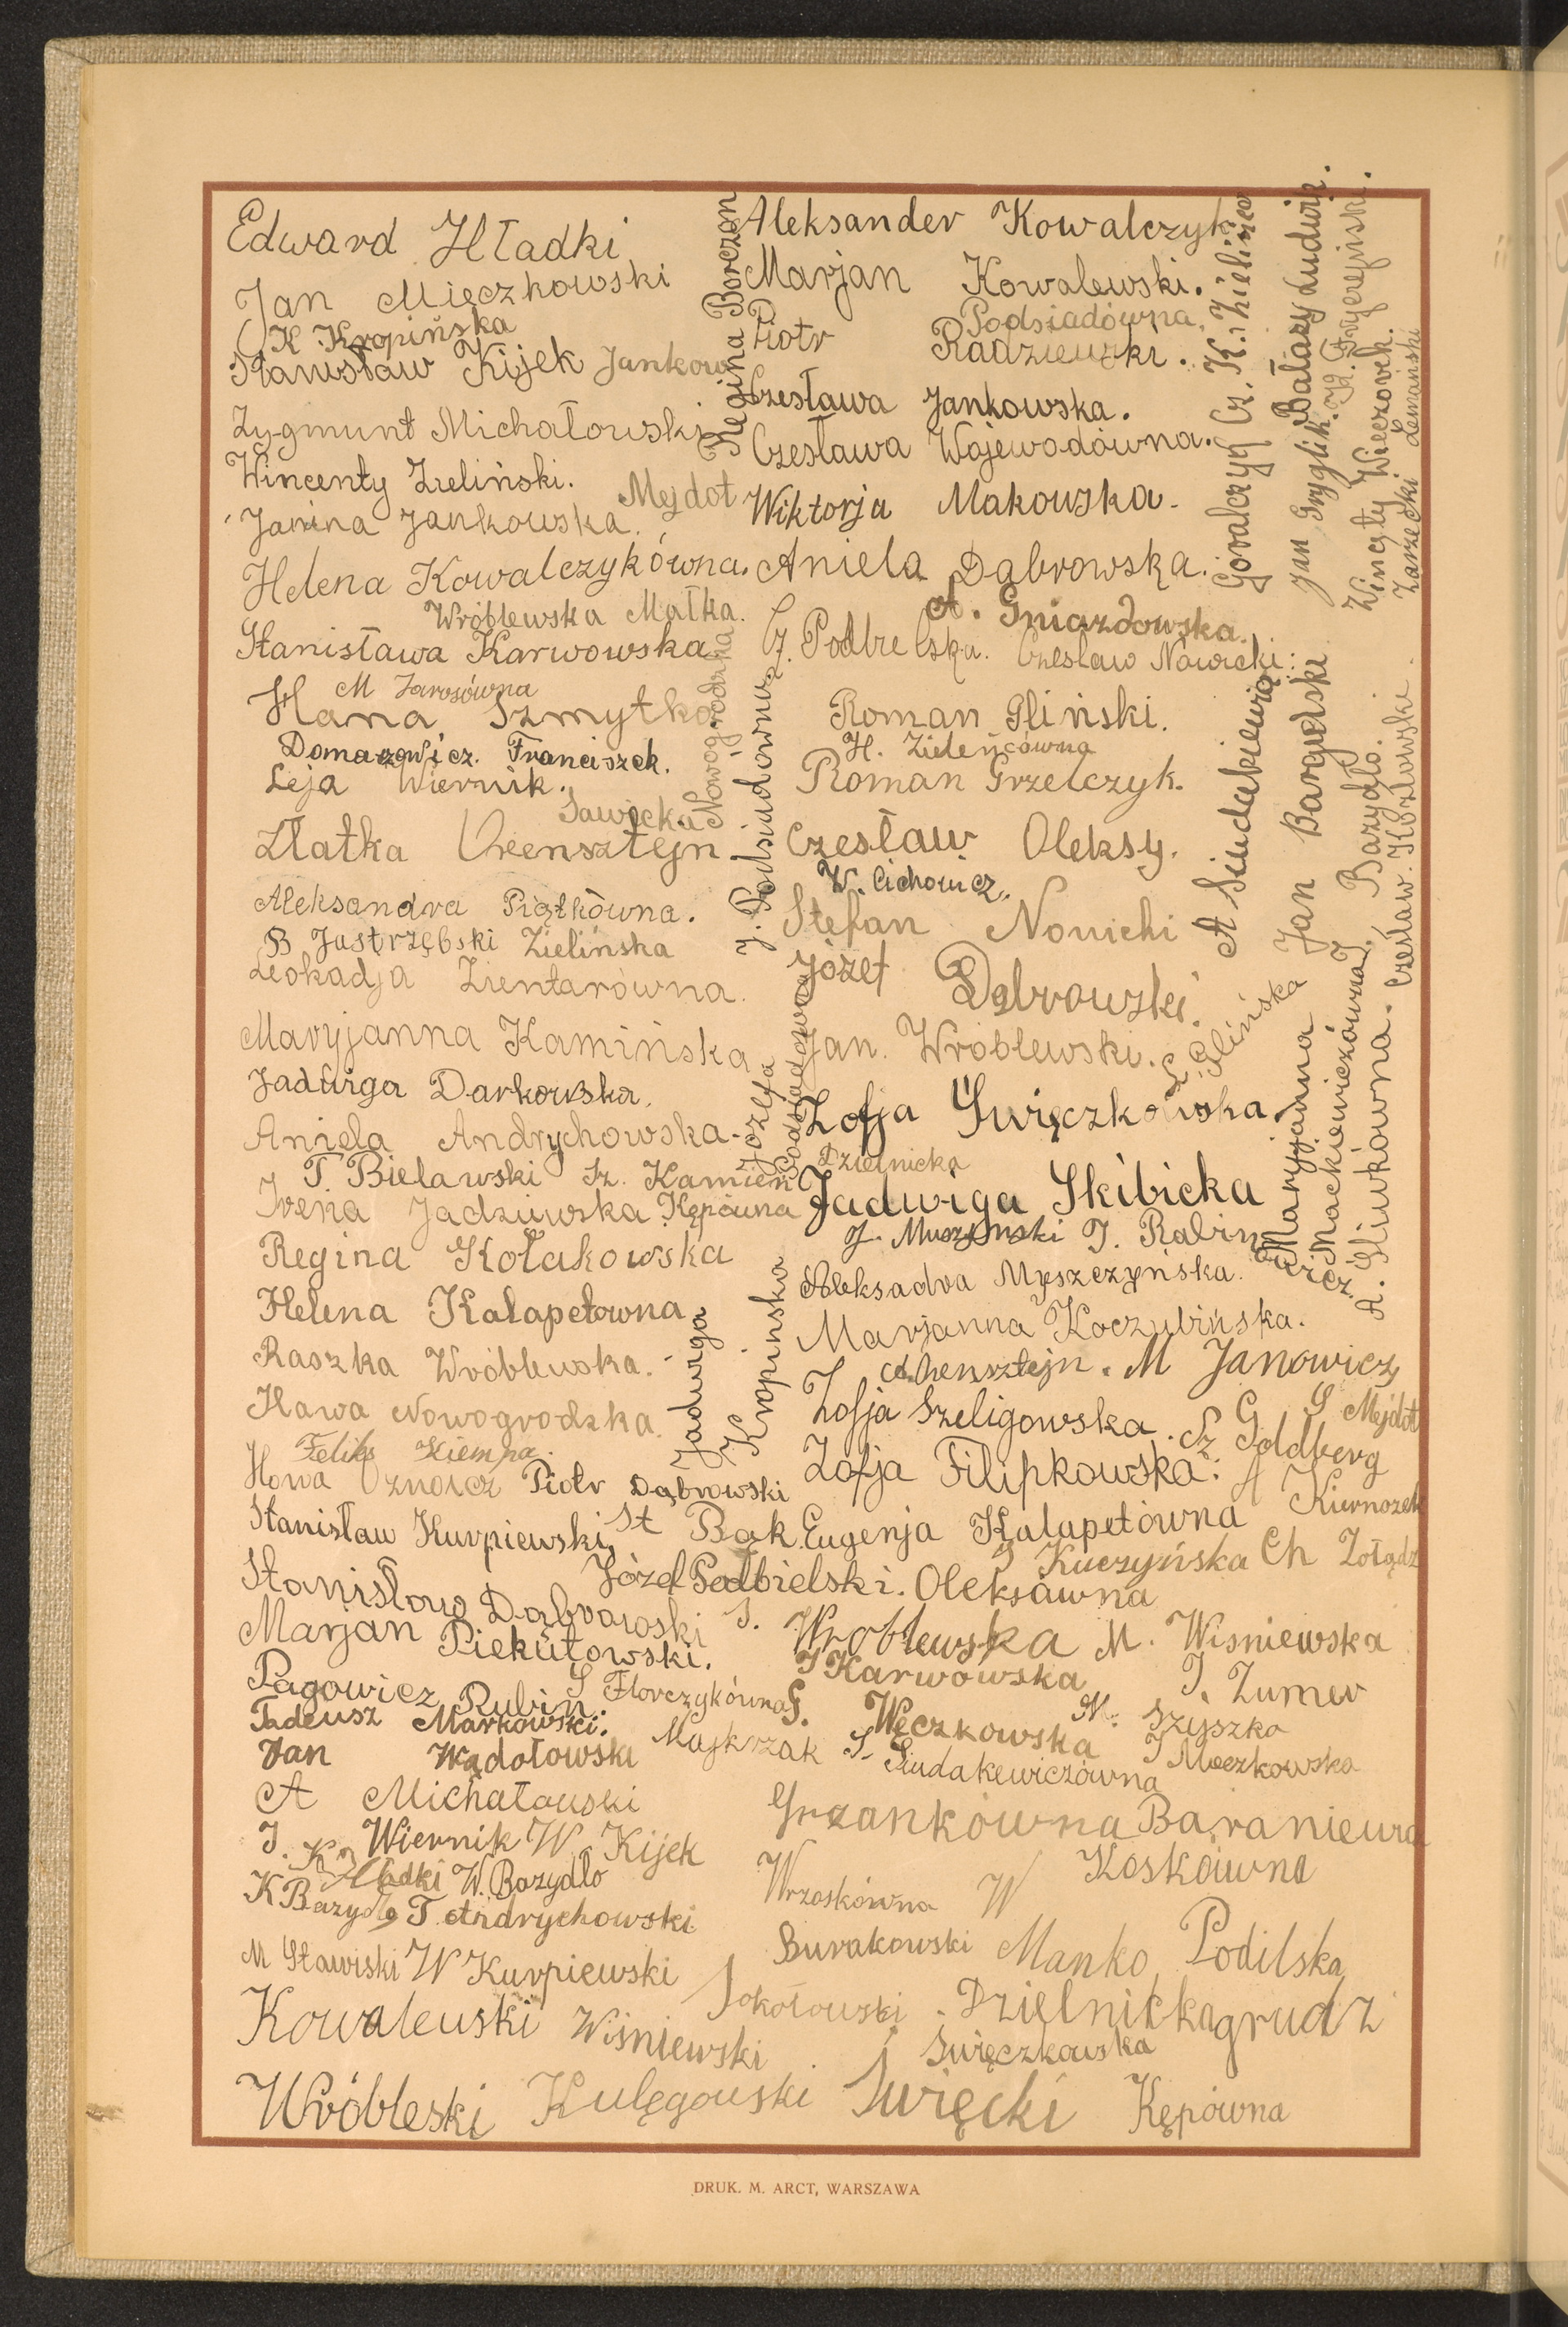 Edward Hładki
Jan Mieczkowski
K Kropińska
Stanisław Kijek Jankow
Zygmunt Michałowski
Wincenty Zieliński.
Mejdot
Janina Jankowska.
Helena Kowalczykówna.
Wróblewska Małka.
Stanisława Karwowska
M Jarosówna
Hana Szmytko
Domarzewicz. Franciszek.
Leja Wiernik.
Sawicka
Złatka
Aleksandra Piątkówna.
B Jastrzębski Zielińska
Leokadja Zientarówna.
Maryjanna Kamińska
Jadwiga Darkowska.
Aniela Andrychowska.
T. Bielawski Sz. Kamień
Irena Jadziuwska Kępówna
Regina Kołakowska
Helena Kałapetowna
Raszka Wróblewska.
Hawa Nowogrodzka.
Feliks Kiempa.
Howa
Piotr Dąbrowski
Stanisław Kurpiewski, St Bąk
Józef Podbielski.
Stanisław Dąbrowski
Marjan Piekutowski.
Pagowicz Rubin.
S Florczykówna
Tadeusz Markowski.
Majkrzak
Jan Wądołowski
A Michałowski
J. Wiernik W. Kijek
K Hładki W. Bazydło
K Bazydło T. Andrychowski
M Stawiski W Kurpiewski
Kowalewski Wiśniewski
Wróbleski Kulęgowski
Regina Borczon
Nowogrodzka
J. Podsiadowna
Józefa Podsiadowna
Jadwiga Kropińska
Aleksander Kowalczyk
Marjan Kowalewski.
Podsiadówna.
Piotr Radziewski.
Czesława Jankowska.
Czesława Wojewodówna.
Wiktorja Makowska.
Aniela Dąbrowska.
A. Gniazdowska.
Cz. Podbielska. Czesław Nowicki:
Roman Gliński.
H. Zieleńcówna
Roman Grzelczyk.
Czesław Oleksy.
W. Cichowicz.
Stefan Nowicki
Józef Dąbrowski.
Jan. Wróblewski.
L Glińska
Zofja Święczkowska
Dzielnicka
Jadwiga Skibicka
J. Muszyński J. Rabinowicz
Aleksadra Myszczyńska.
Marjanna Koczubińska.
Chensztejn. M Janowicz
Zofja Szeligowska. S Mejdot
Sz Goldberg
Zofja Filipkowska.
A Kiernozek
Eugenja Kałapetówna
J Kuczyńska Ch Żołądz
Oleksawna
J. Wroblewska M. Wisniewska
J Karwowska J. Zumer
S. Węczkowska N. Szyszko
S. Siudakewiczówna J Moczkowska
Grzankówna Baraniewa
Koskówna
Wrzoskówna W
Burakowski Manko Podilska
Sokołowski. Dzielnicka grudz
Święczkowska
Święcki Kępówna
Góralczyk Cz. K. Zieliniec
Bałazy Ludwik.
Jan Gryglik.
Wincęty Wieczorek.
Zarzecki Lemański
A Siudakiewicz
Jan Bargielski
J Bazydło.
Czesław. Kozłowski.
Maryjanna Mackiewiczówna.
A. Śliwkówna.
DRUK. M. ARCT, WARSZAWA